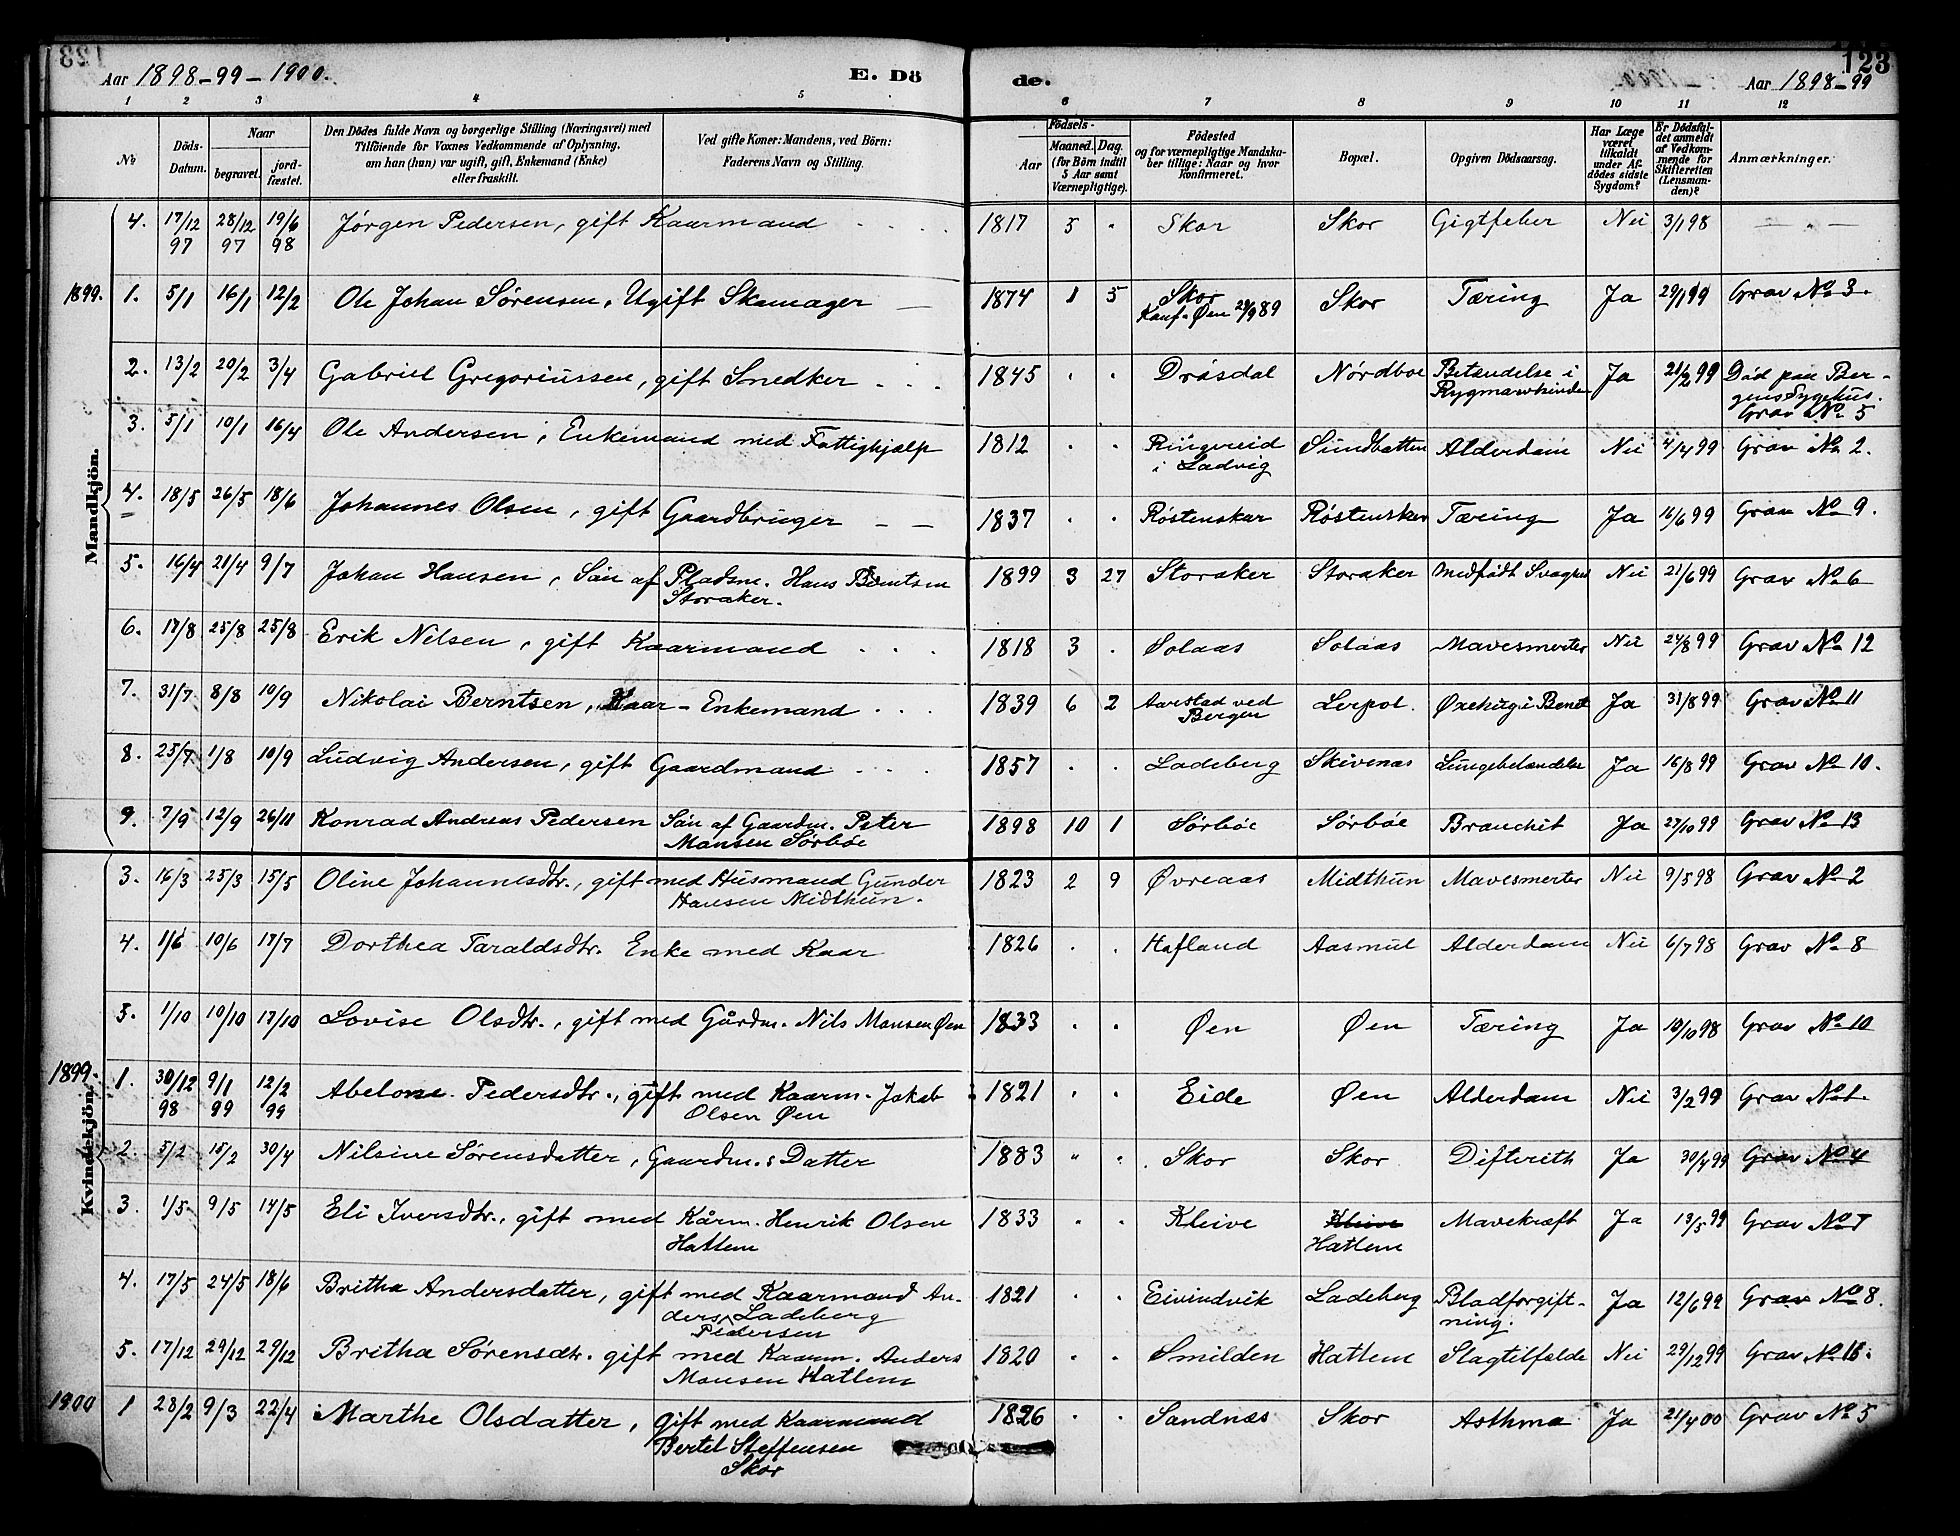 123
Aar 1898-99-1900. E. Dö de. Aar 1898-99
1 2 3 4 5 6 7 8 9 10 11 12
No
Döds-Datum.
Naar
begravet.
jord-fæstet.
Den Dödes fulde Navn og borgerlige Stilling (Næringsvei) med
Tilföiende for Voxnes Vedkommende af Oplysning,
om han (hun) var ugift, gift, Enkemand (Enke)
eller fraskilt.
Ved gifte Koner: Mandens, ved Börn:
Faderens Navn og Stilling.
Födsels-
Aar
Maaned. Dag.
(for Börn indtil
5 Aar samt
Værnepligtige).
Födested
og for værnepligtige Mandska-
ber tillige: Naar og hvor
Konfirmeret.
Bopæl.
Opgiven Dödsaarsag.
Har Læge
været
tilkaldt
under Af-
dödes sidste
Sygdom?
Er Dödsfal-
det anmeldt
af Vedkom-
mende for
Skifteretten
(Lensman-
den)?
Anmærkninger.
Mandkjön.
4. 17/12 97 28/12 97 19/6 98 Jørgen Pedersen, gift Kaarmand 1817 5 " Skor Skor Gigtfeber Nei 3/1 98 — " —
1899. 1. 5/1 16/1 12/2 Ole Johan Sørensen, Ugift Skomager — 1874 1 5 Skor Skor Tæring Ja 29/1 99 Grav No 3.
Konf. Øen 29/9 89
2. 13/2 20/2 3/4 Gabriel Gregoriussen, gift Snedker 1845 " " Drøsdal Nordboe Betændelse i Rygmarvhinden Ja 21/2 99 Død paa Ber-
gens Sygehus.
Grav No 5
3. 5/1 10/1 16/4 Ole Andersen, Enkemand med Fattighjælp 1812 " " Ringereid i Ladvig Sundbotten Alderdom Nei 4/4 99 Grav No 2.
4. 18/5 26/5 18/6 Johannes Olsen, gift Gaardbruger — — 1837 " " Røstenskar Røstenskar Tæring Ja 16/6 99 Grav No 9.
5. 16/4 21/4 9/7 Johan Hansen, Søn af Pladsm. Hans Berntsen 1899 3 27 Storaker Storaker Medfødt Svaghed Nei 21/6 99 Grav No 6
Storaker.
6. 17/8 25/8 25/8 Erik Nilsen, gift Kaarmand 1818 3 . Solaas Solaas Mavesmerter Nei 24/8 99 Grav No 12
7. 31/7 8/8 10/9 Nikolai Berntsen, Kaar-Enkemand 1839 6 2 Aarestad ved Bergen Lerpol. Øxehug i Benet Ja 31/8 99 Grav No 11
8. 25/7 1/8 10/9 Ludvig Andersen, gift Gaardmand 1857 . . Ladeberg Skivenæs Lungebetændelse Ja 16/8 99 Grav No 10.
9. 7/9 12/9 26/11 Konrad Andreas Pedersen Søn af Gaardm. Peter 1898 10 1 Sørbøe Sørbøe Bronchit Ja 27/10 99 Grav No 13
Monsen Sørbøe
Kvindekjön.
3. 16/3 25/3 15/5 Oline Johannesdtr., gift med Husmand Gunder 1823 2 9 Øvreaas Midthun Mavesmerter Nei 9/5 98 Grav No 2
Hansen Midthun.
4. 1/6 10/6 17/7 Dorthea Taraldsdtr. Enke med Kaar 1826 . . Hafland Aasmul Alderdom Nei 6/7 98 Grav No 8
5. 1/10 10/10 17/10 Lovise Olsdtr., gift med Gårdm. Nils Monsen Øen 1833 . . Øen Øen Tæring Ja 10/10 98 Grav No 10
1899. 1. 30/12 98 9/1 99 12/2 99 Abelone Pedersdtr., gift med Kaarm. Jakob 1821 " " Eide Øen Alderdom Nei 3/2 99 Grav No 1.
Olsen Øen
2. 5/2 15/2 30/4 Nilsine Sørensdatter, Gaardm.s Datter 1883 " . Skor Skor Difterith Ja 30/4 99 Grav No 4
3. 1/5 9/5 14/5 Eli Iversdtr., gift med Kårm. Henrik Olsen 1833 . . Kleive Kleive Mavekræft Ja 13/5 99 Grav No 7
Hattem Hattem
4. 17/5 24/5 18/6 Britha Andersdatter, gift med Kaarmand An- 1821 . . Eivindvik Ladeberg Blodforgift- Ja 12/6 99 Grav No 8.
ders Ladeberg ning.
Pedersen
5. 17/12 29/12 29/12 Britha Sørensdtr. gift med Kaarm. Anders 1820 . . Smilden Hattem Slagtilfælde Nei 29/12 99 Grav No 18.
Monsen Hattem
1900 1 28/2 9/3 22/4 Marthe Olsdatter, gift med Kaarmand 1826 . . Sandnæs Skor Asthma Ja 21/4 00 Grav No 5
Bertel Steffensen
Skor